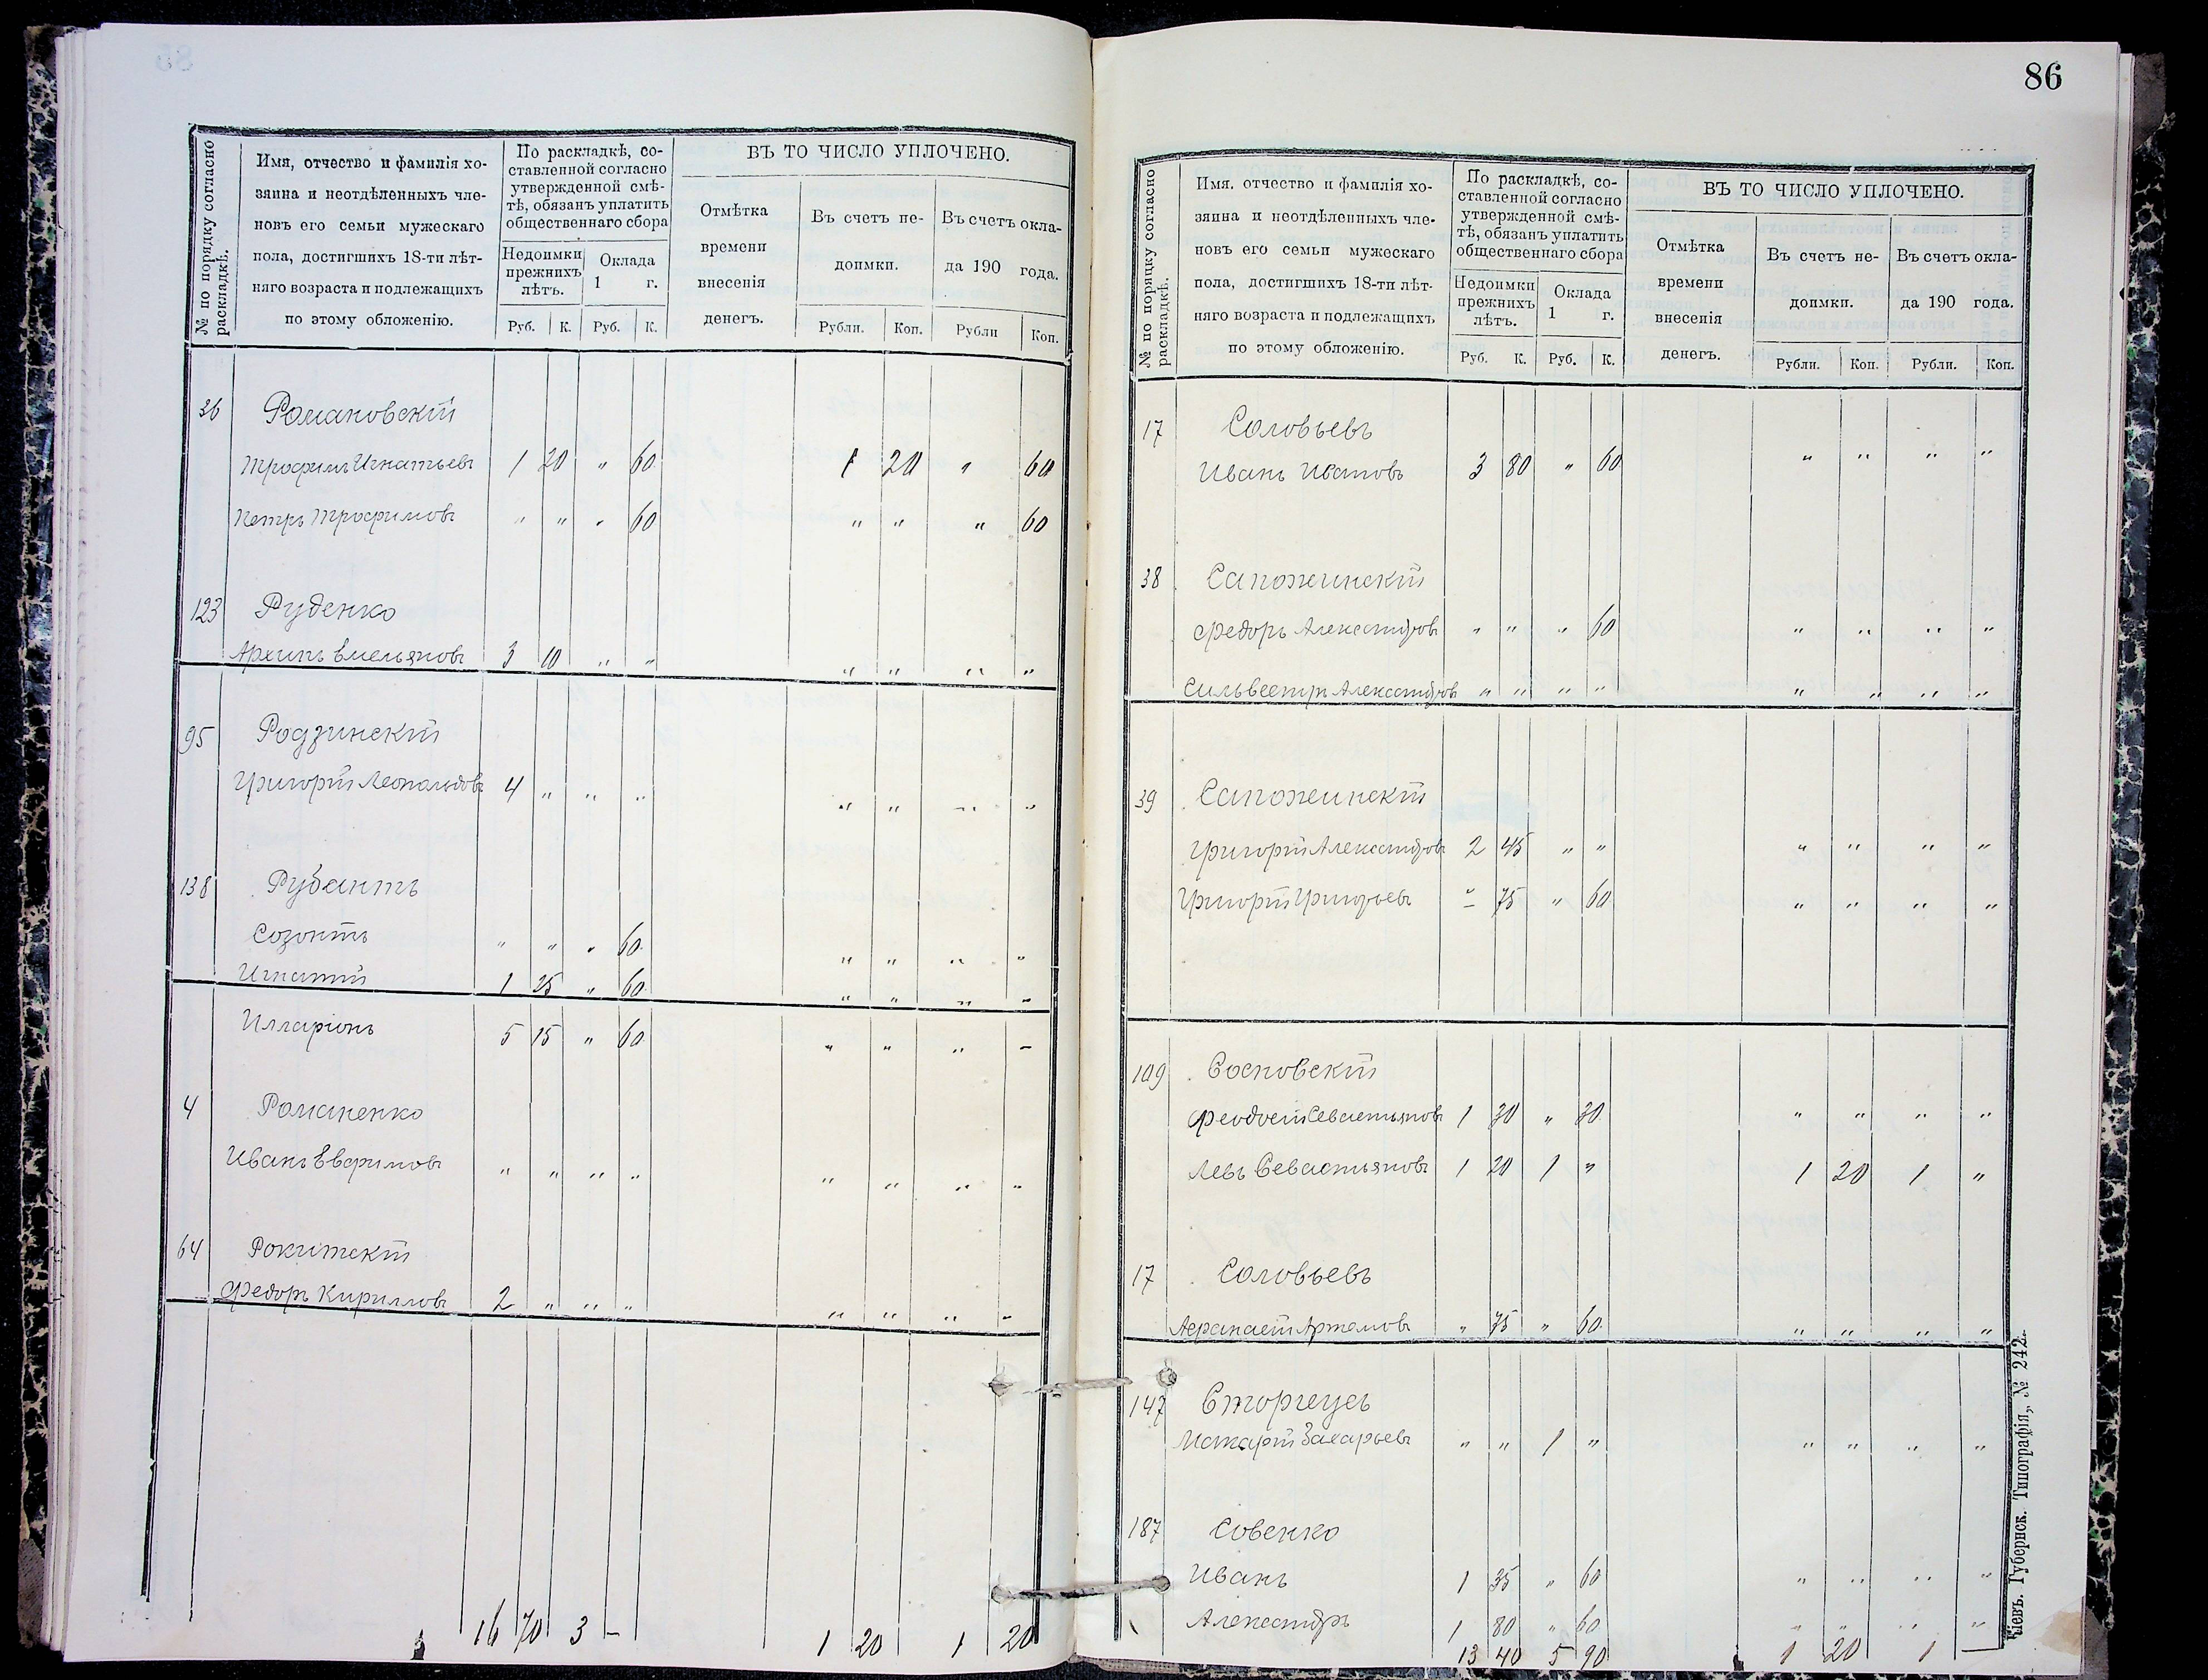 86
№ по порядку согласно раскладкѣ.
Имя, отчество и фамилія хозяина и неотдѣленныхъ членовъ его семьи мужескаго пола, достигшихъ 18-ти лѣтняго возраста и подлежащихъ по этому обложенію.
По раскладкѣ, составленной согласно утвержденной смѣтѣ, обязанъ уплатить общественнаго сбора
Недоимки прежнихъ лѣтъ.
Оклада 1 г.
Руб. К. Руб. К.
ВЪ ТО ЧИСЛО УПЛОЧЕНО.
Отмѣтка времени внесенія денегъ.
Въ счетъ недоимки.
Въ счетъ оклада 190 года.
Рубли. Коп. Рубли Коп.
36 Романовскій
Трофимъ Игнатьевъ 1 20 " 60 1 20 " 60
Петръ Трофимовъ " " " 60 " " " 60
123 Руденко
Архипъ Емельяновъ 3 10 " " " " " "
95 Родзинскій
Григорій Леонольдовъ 4 " " " " " " "
138 Рубантъ
Созонтъ " " " 60 " " " "
Игнатій 1 25 " 60 " " " "
Илларіонъ 5 15 " 60 " " " "
4 Романенко
Иванъ Евфимовъ " " " " " " " "
64 Рокитскій
Федоръ Кирилловъ 2 " " " " " " "
16 70 3 - 1 20 1 20
№ по порядку согласно раскладкѣ.
Имя, отчество и фамилія хозяина и неотдѣленныхъ членовъ его семьи мужескаго пола, достигшихъ 18-ти лѣтняго возраста и подлежащихъ по этому обложенію.
По раскладкѣ, составленной согласно утвержденной смѣтѣ, обязанъ уплатить общественнаго сбора
Недоимки прежнихъ лѣтъ.
Оклада 1 г.
Руб. К. Руб. К.
ВЪ ТО ЧИСЛО УПЛОЧЕНО.
Отмѣтка времени внесенія денегъ.
Въ счетъ недоимки.
Въ счетъ оклада 190 года.
Рубли. Коп. Рубли. Коп.
17 Соловьевъ
Иванъ Ивановъ 3 80 " 60 " " " "
38 Сапожинскій
Федоръ Александровъ " " " 60 " " " "
Сильвестръ Александровъ " " " " " " " "
39 Сапожинскій
Григорій Александровъ 2 45 " " " " " "
Григорій Григорьевъ " 75 " 60 " " " "
109 Сосновскій
Феодосій Севастьяновъ 1 30 " 30 " " " "
Левъ Севастьяновъ 1 20 1 " 1 20 1 "
17 Соловьевъ
Афанасій Артемовъ " 75 " 60 " " " "
147 Сторчеусъ
Макарій Захарьевъ " " 1 " " " " "
187 Совенко
Иванъ 1 35 " 60 " " " "
Александръ 1 80 " 60 " " " "
13 40 5 90 1 20 1 —
Кіевъ. Губернск. Типографія,, № 242.